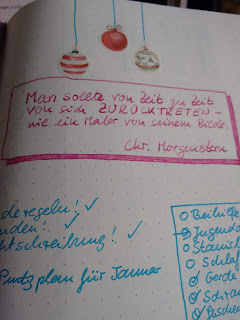 Man sollte von Zeit zu Zeit
von sich ZURÜCKTRETEN –
wie ein Maler von seinem Bilde.
Chr. Morgenstern
deregeln! ✓
nden! ✓
htschreibung! ✓
Putzplan für Januar
Beihilfe
Jugend
Stanis
Schlaf
Gerda
Schra
Geschen